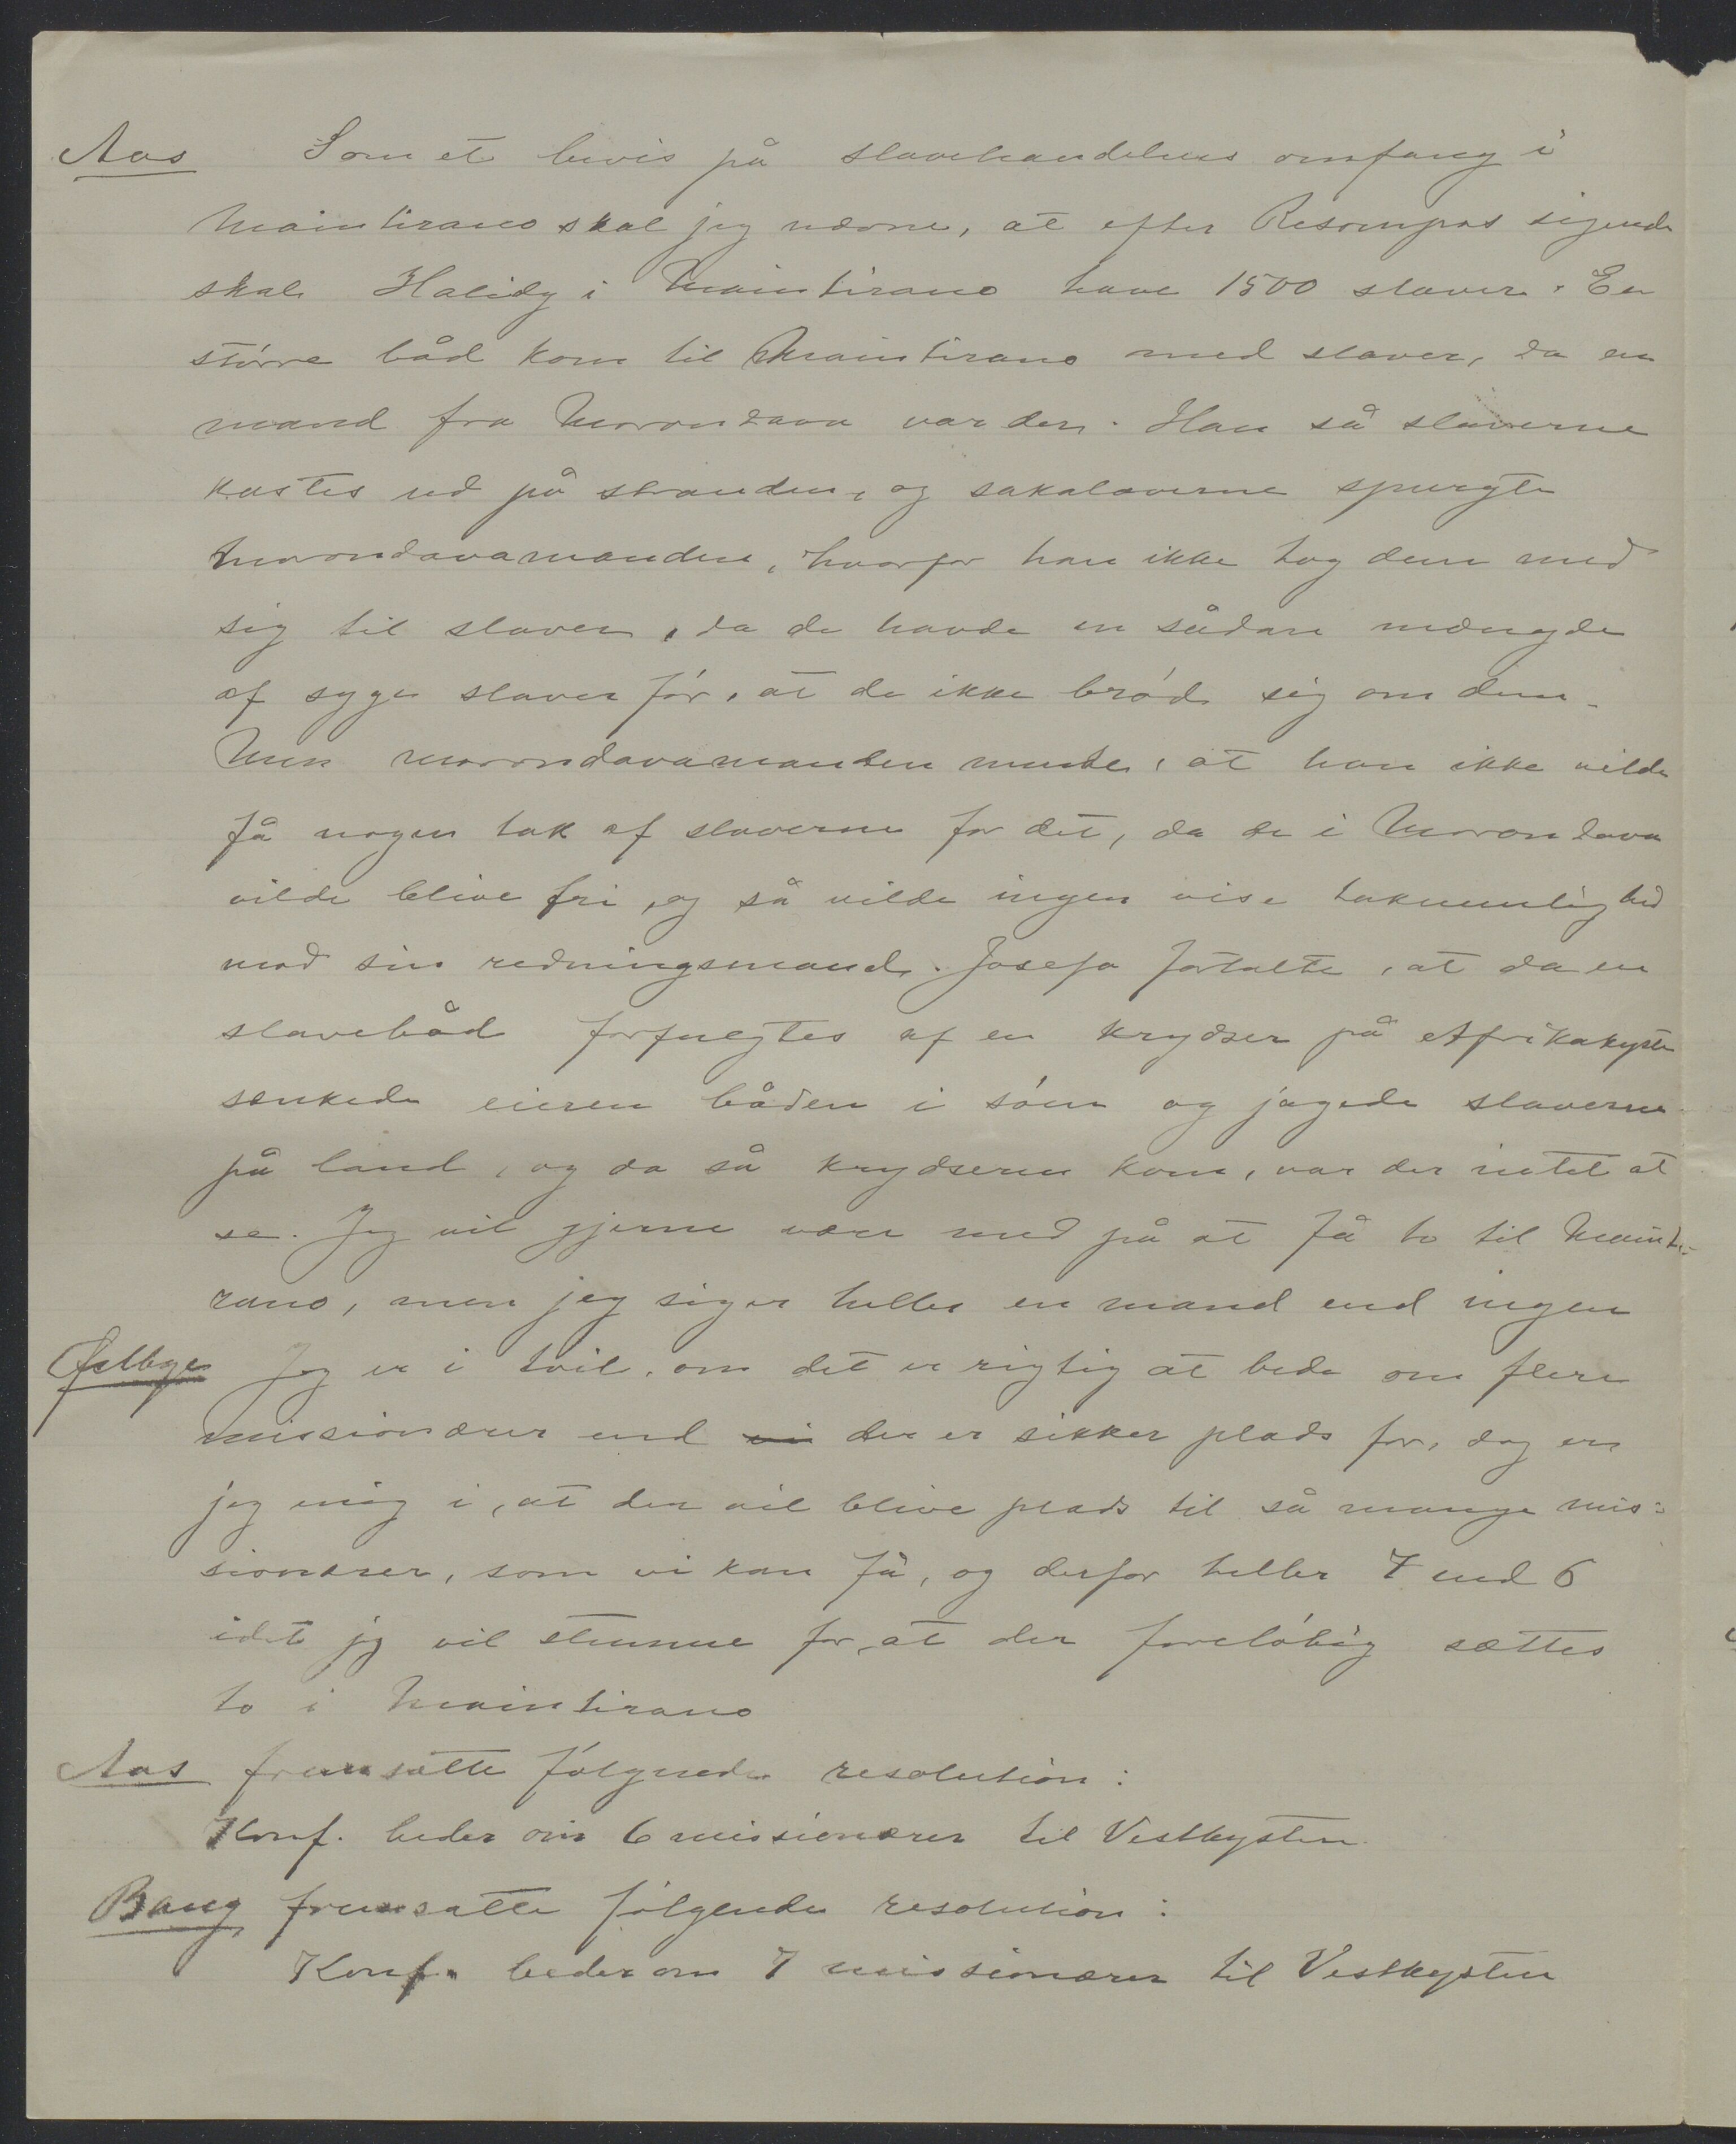 Aas Som et bevis på slavehandelens omfang i
Maintirano skal jeg nævne, at efter Resompas sigende
skal Halidy i Maintirano have 1500 slaver. En
större båd kom til Maintirano med slaver, da en
mand fra Morondava var der. Han så slaverne
kastes ud på stranden, og sakalaverne spurgte
Morondavamanden, hvorfor han ikke tog dem med
sig til slaver, da de havde en sådan mængde
af syge slaver för, at de ikke bröd sig om dem.
Men morondavamanden mente, at han ikke vilde
få nogen tak af slaverne for det, da de i Morondava
vilde blive fri, og så vilde ingen vise taknemlighed
mod sin redningsmand. Josefa fortalte, at da en
slavebåd forfulgtes af en krydser på Afrikakysten
sænkede eieren båden i söen og jagede slaverne
på land, og da så krydseren kom, var der intet at
se. Jeg vil gjerne være med på at få to til Mainti-
rano, men jeg siger heller en mand end ingen
Jeg er i tvil, om det er rigtig at bede om flere
missionærer end vi der er sikker plads for, dog er
jeg enig i, at der vil blive plads til så mange mis-
sionærer, som vi kan få, og derfor heller 7 end 6
idet jg vil stemme for, at der foreløbig sættes
to i Maintirano
Aas fremsatte fölgende resolution:
Konf. beder om 6 missionærer til Vestkysten.
Bang fremsatte fölgende resolution:
Konf. beder om 7 missionærer til Vestkysten